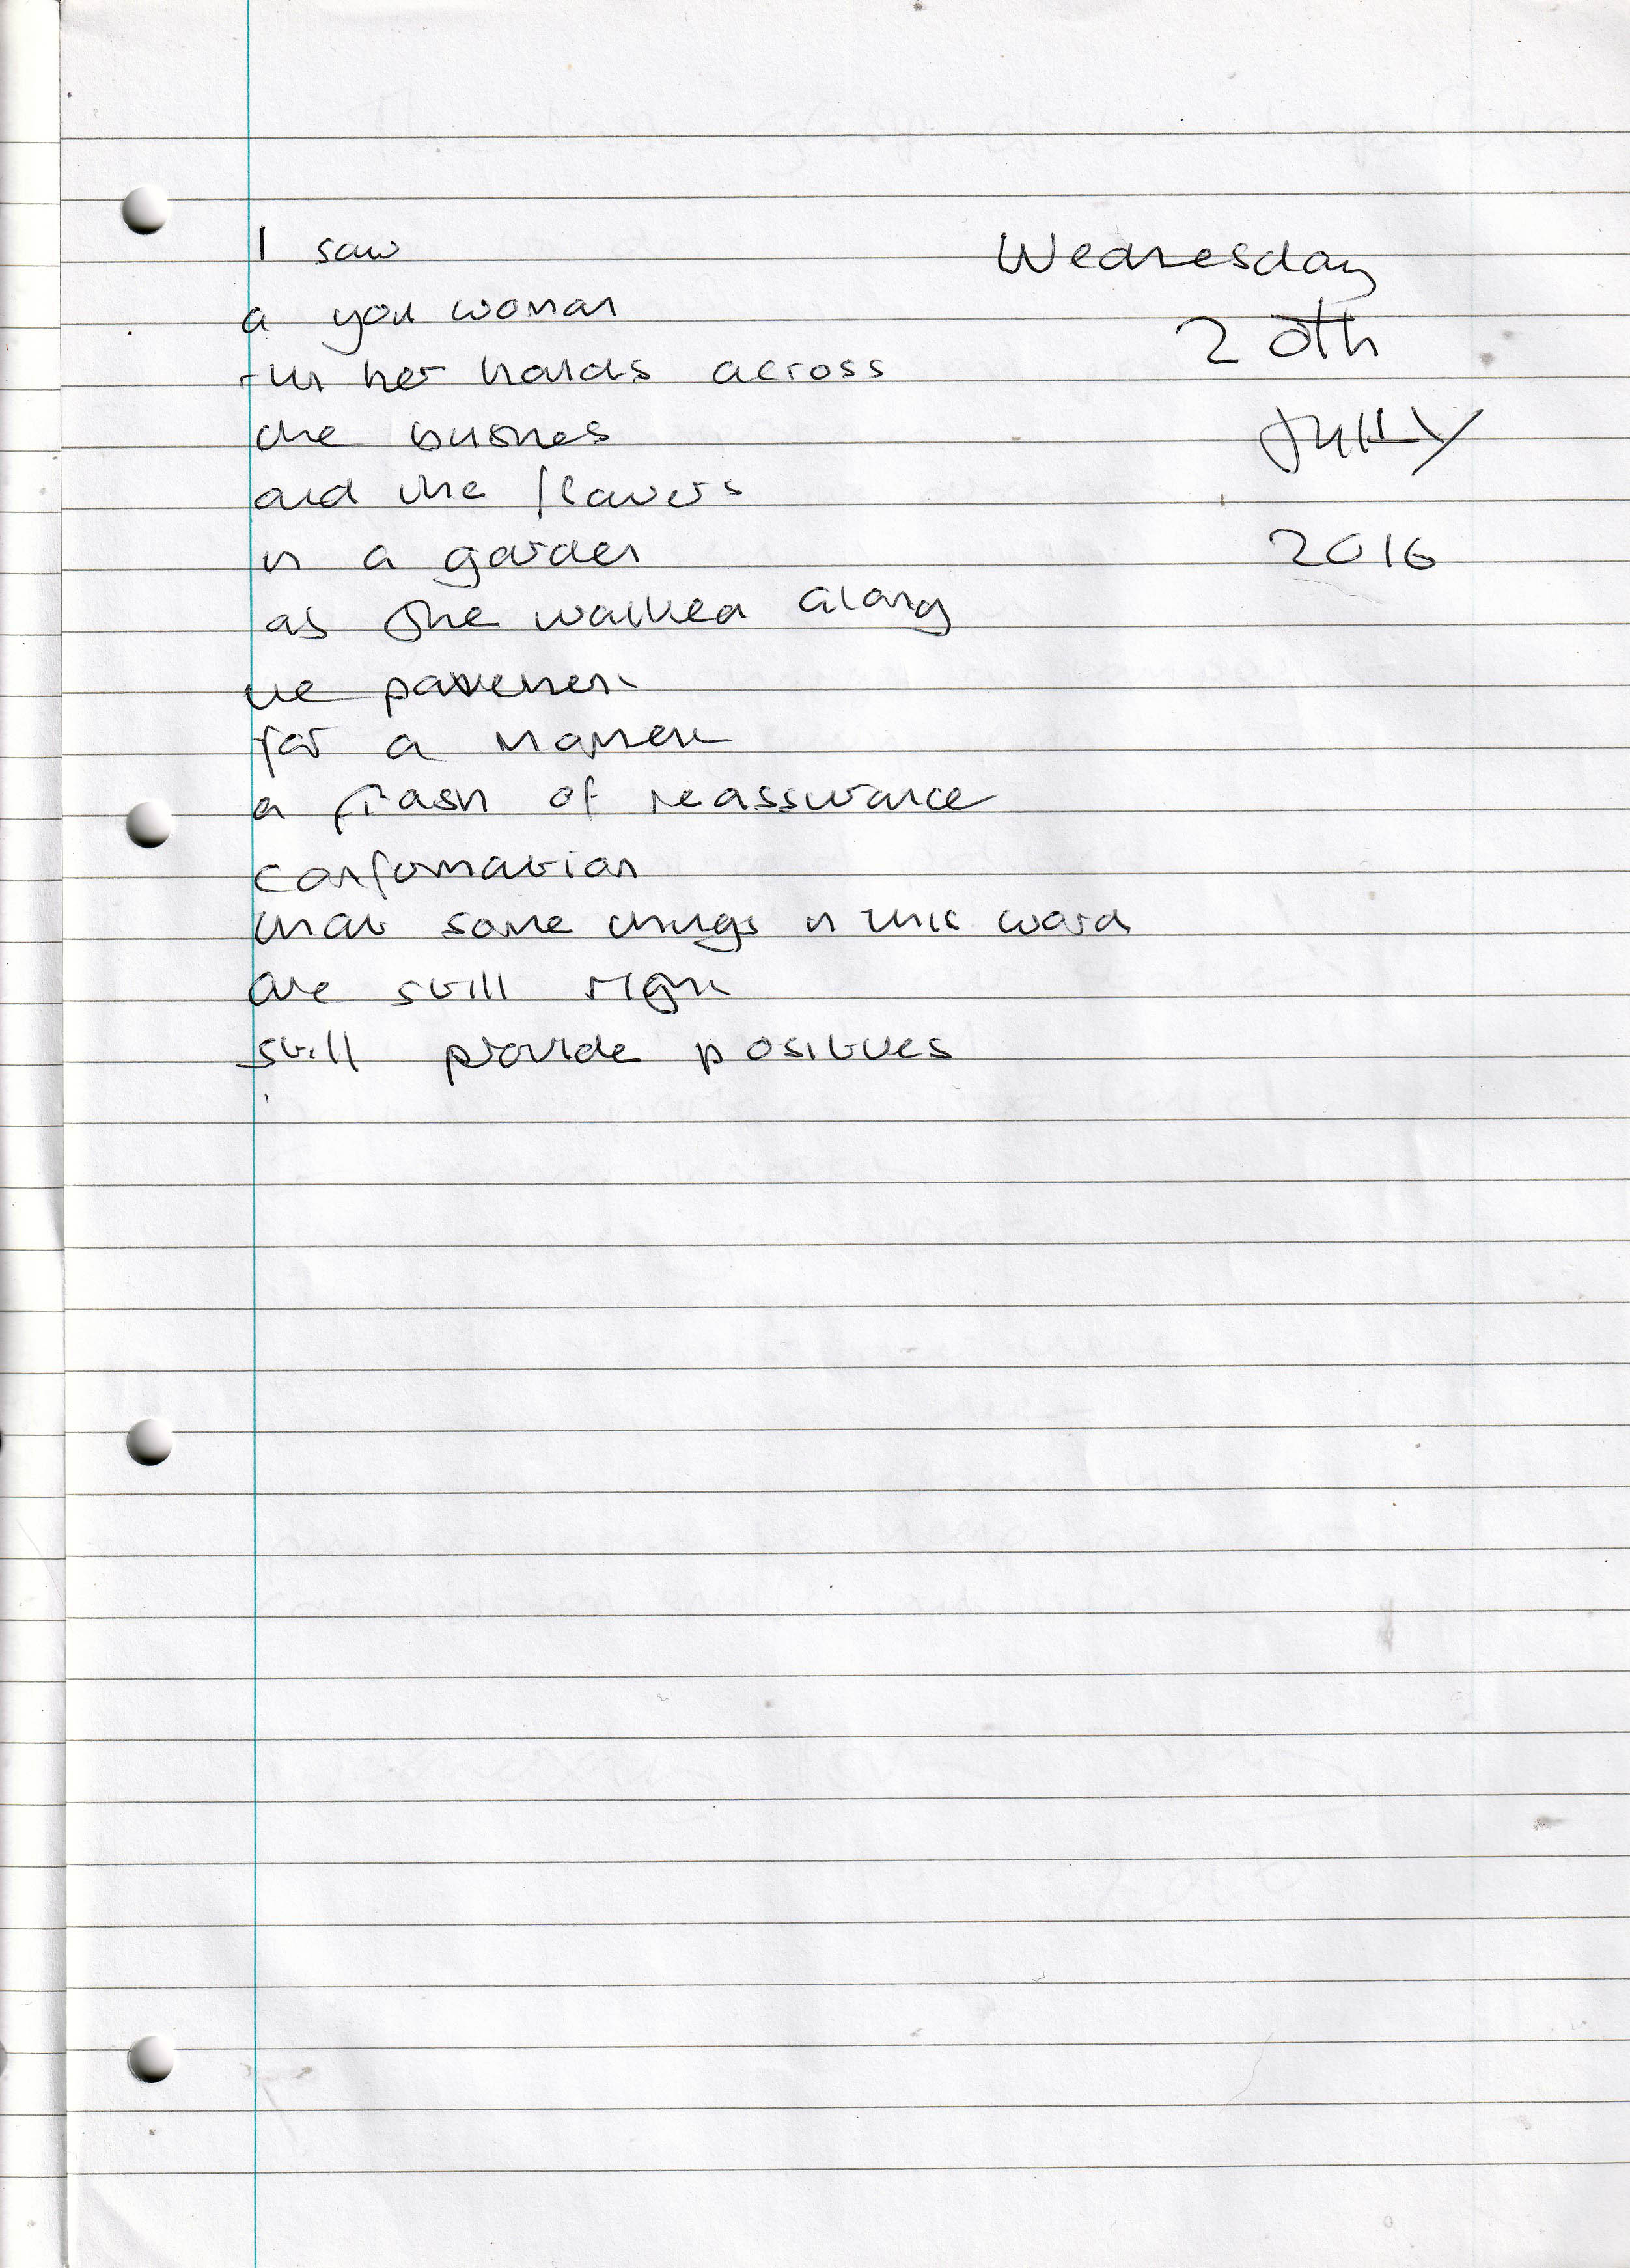 I saw
a you woman
run her hands across
the bushes
and the flowers
in a garden
as she walked along
the pavement
for a moment
a flash of reassurance
confirmation
that some things in this world
are still right
still provide positives
Wednesday
20th
July
2016